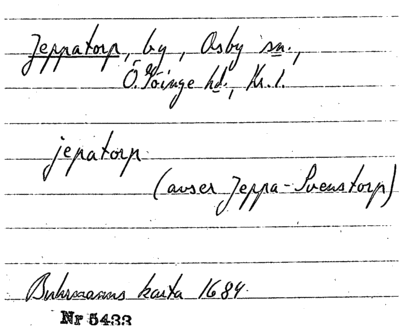 Jeppatorp, by, Osby sn.,
Ö. Göinge hd., Kr. l.
jepatorp
(avser Jeppa-Svenstorp)
Buhrmanns karta 1684
Nr 5433